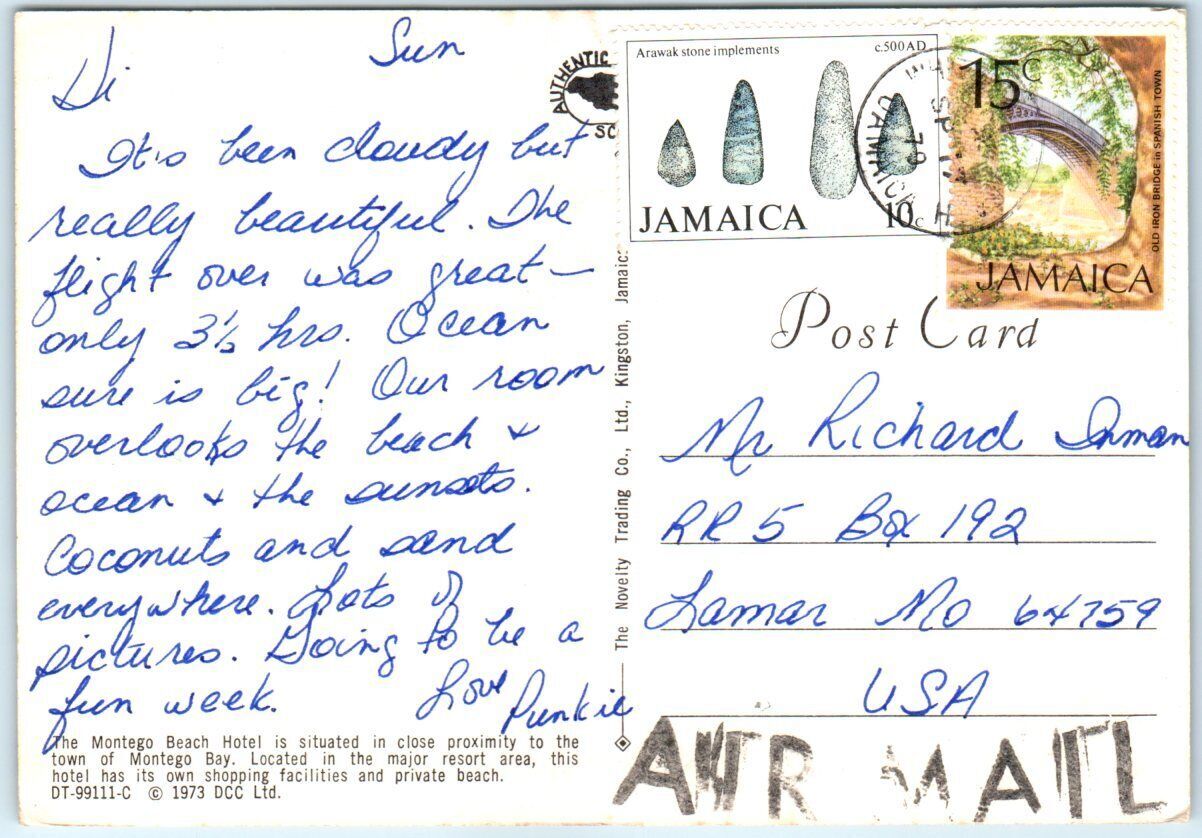 Sun
Hi
It's been cloudy but
really beautiful. The
flight over was great—
only 3½ hrs. Ocean
sure is big! Our room
overlooks the beach &
ocean & the sunsets.
Coconuts and sand
everywhere. Lots of
pictures. Going to be a
fun week. Love
Punkie
The Montego Beach Hotel is situated in close proximity to the
town of Montego Bay. Located in the major resort area, this
hotel has its own shopping facilities and private beach.
DT-99111-C © 1973 DCC Ltd.
AUTHENTIC
SC
The Novelty Trading Co., Ltd., Kingston, Jamaic
Arawak stone implements c.500AD
JAMAICA 10c
15c
OLD IRON BRIDGE in SPANISH TOWN
JAMAICA
JAMAICA
78
Post Card
Mr Richard Inman
RR 5 Box 192
Lamar Mo 64759
USA
AIR MAIL